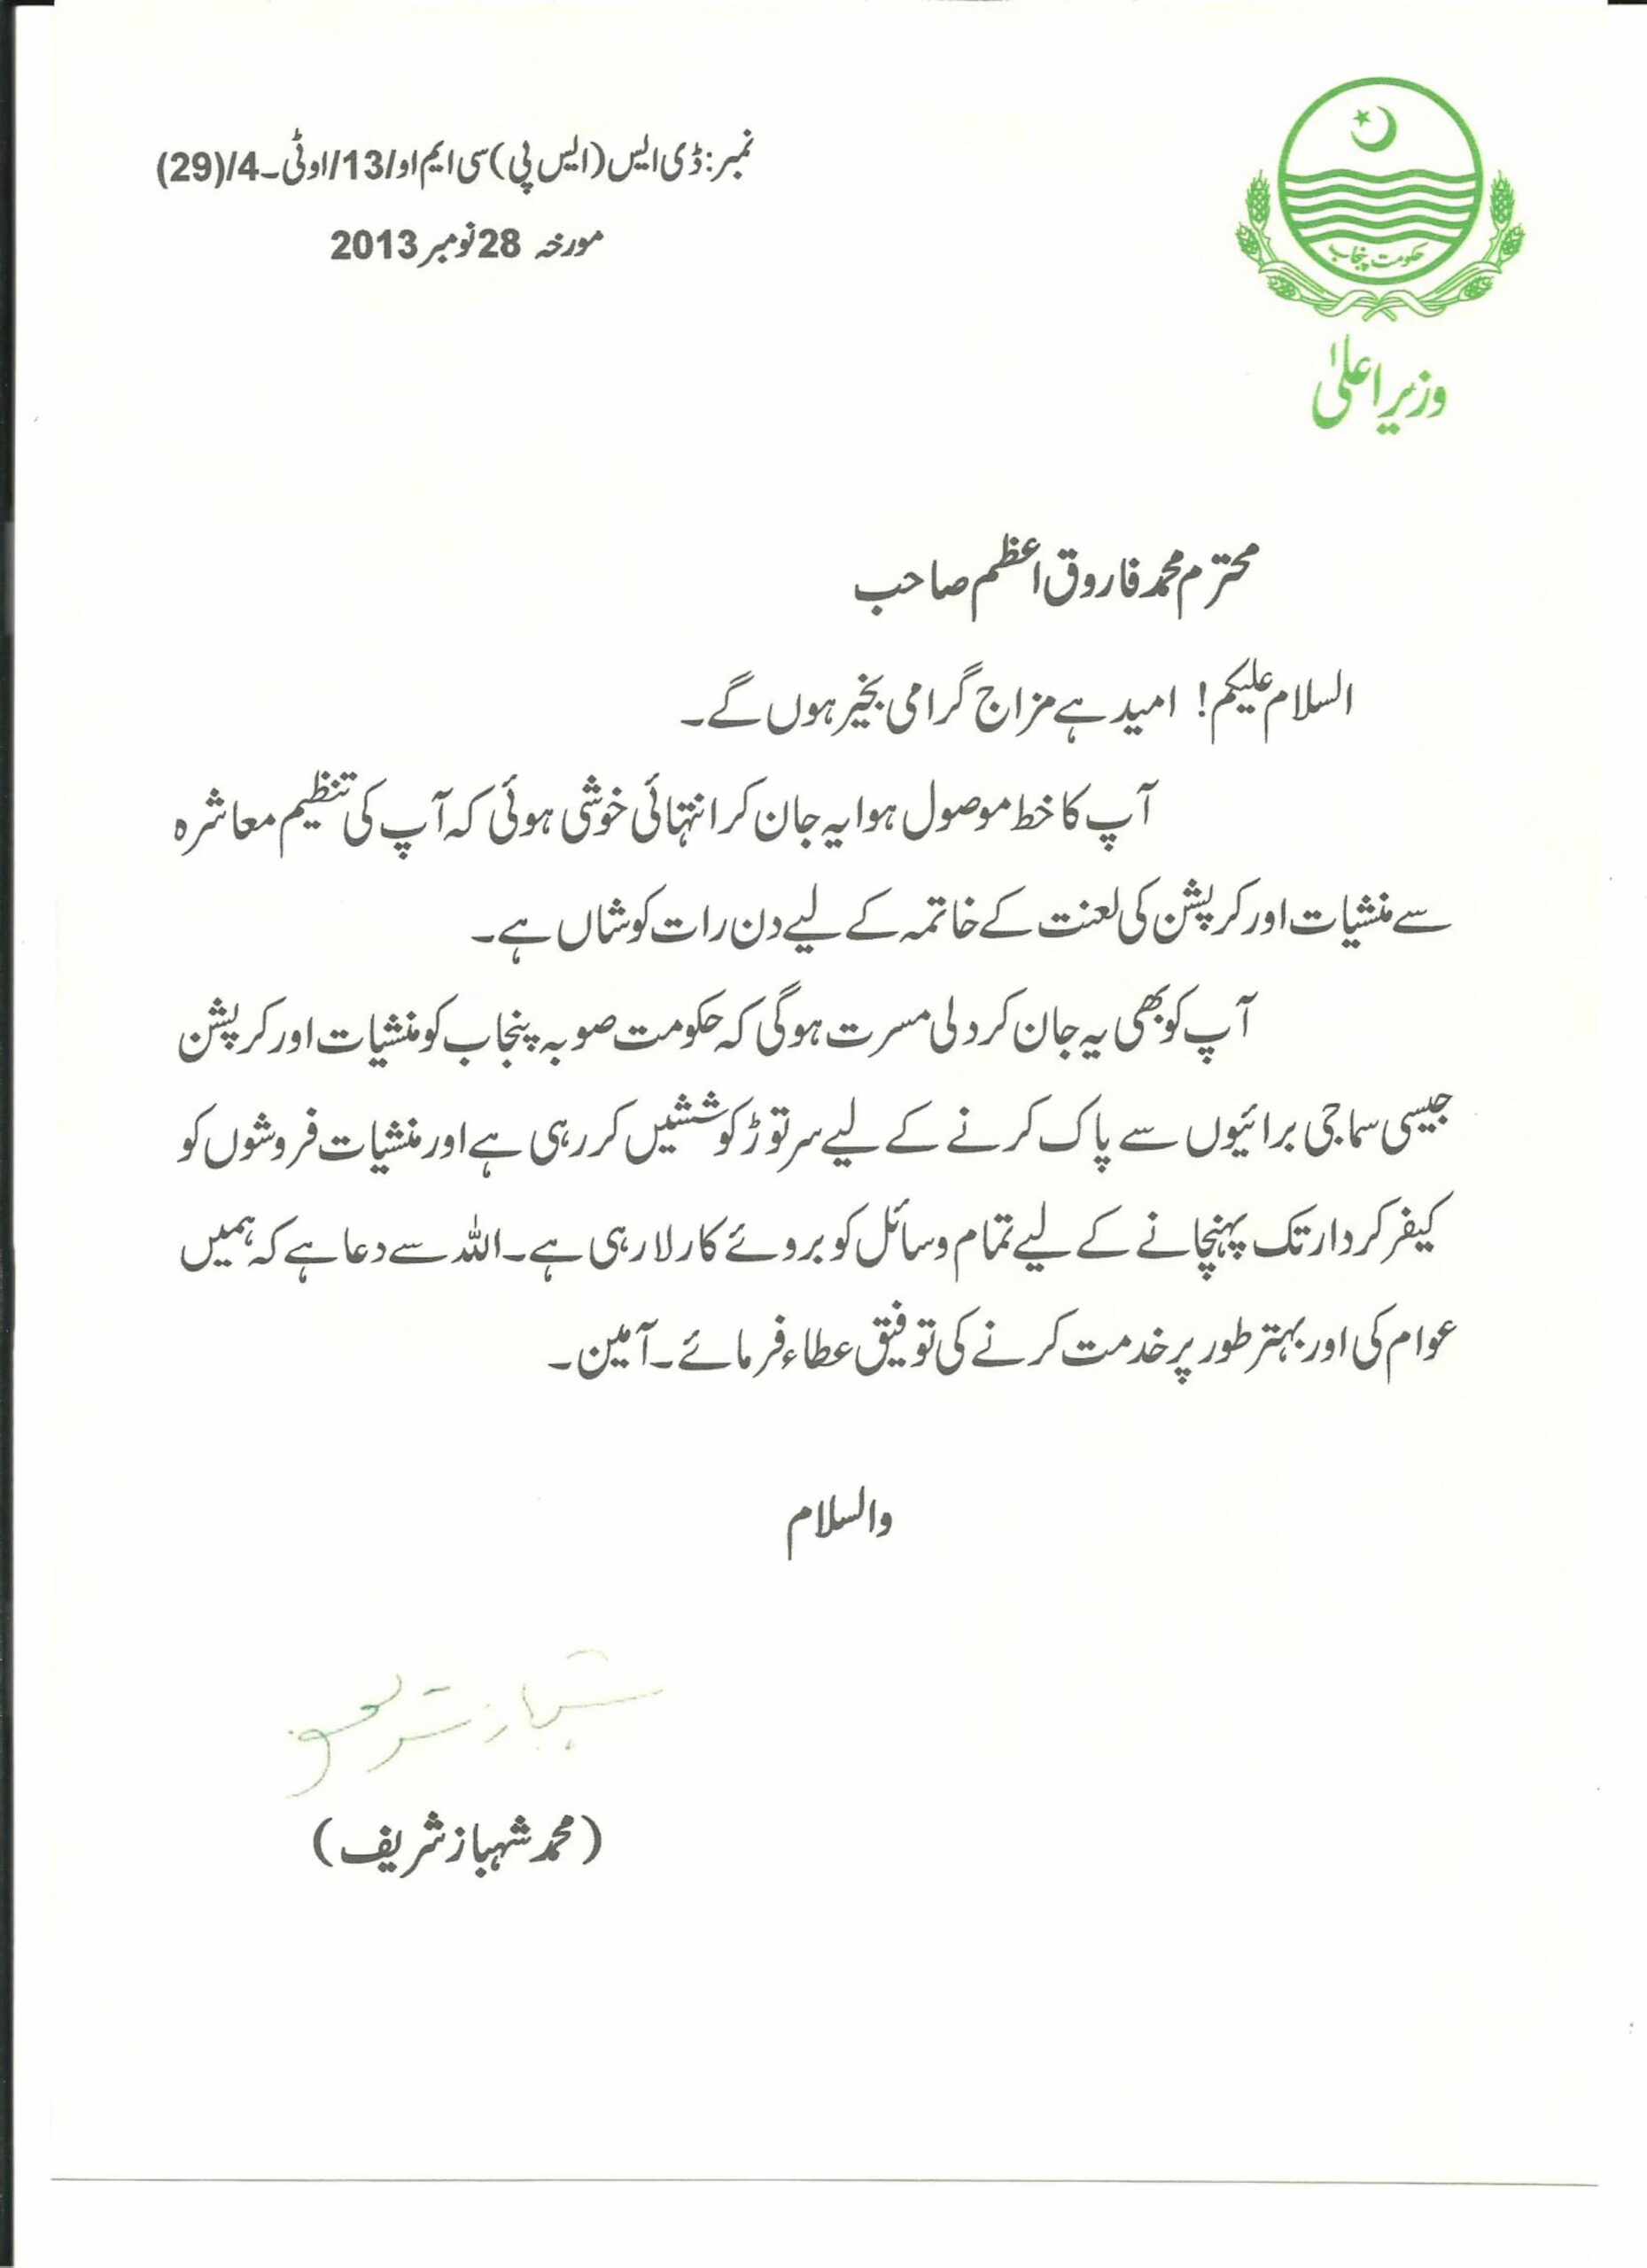 نمبر: ڈی ایس (ایس پی) سی ایم او/13/اوٹی۔4/(29)
مورخہ 28 نومبر 2013
حکومت پنجاب
وزیر اعلیٰ
محترم محمد فاروق اعظم صاحب
السلام علیکم! امید ہے مزاج گرامی بخیر ہوں گے۔
آپ کا خط موصول ہوا یہ جان کر انتہائی خوشی ہوئی کہ آپ کی تنظیم معاشرہ
سے منشیات اور کرپشن کی لعنت کے خاتمہ کے لیے دن رات کوشاں ہے۔
آپ کو بھی یہ جان کر دلی مسرت ہوگی کہ حکومت صوبہ پنجاب کو منشیات اور کرپشن
جیسی سماجی برائیوں سے پاک کرنے کے لیے سر توڑ کوششیں کر رہی ہے اور منشیات فروشوں کو
کیفر کردار تک پہنچانے کے لیے تمام وسائل کو بروئے کار لا رہی ہے۔ اللہ سے دعا ہے کہ ہمیں
عوام کی اور بہتر طور پر خدمت کرنے کی توفیق عطاء فرمائے۔ آمین۔
والسلام
شہباز شریف
(محمد شہباز شریف)